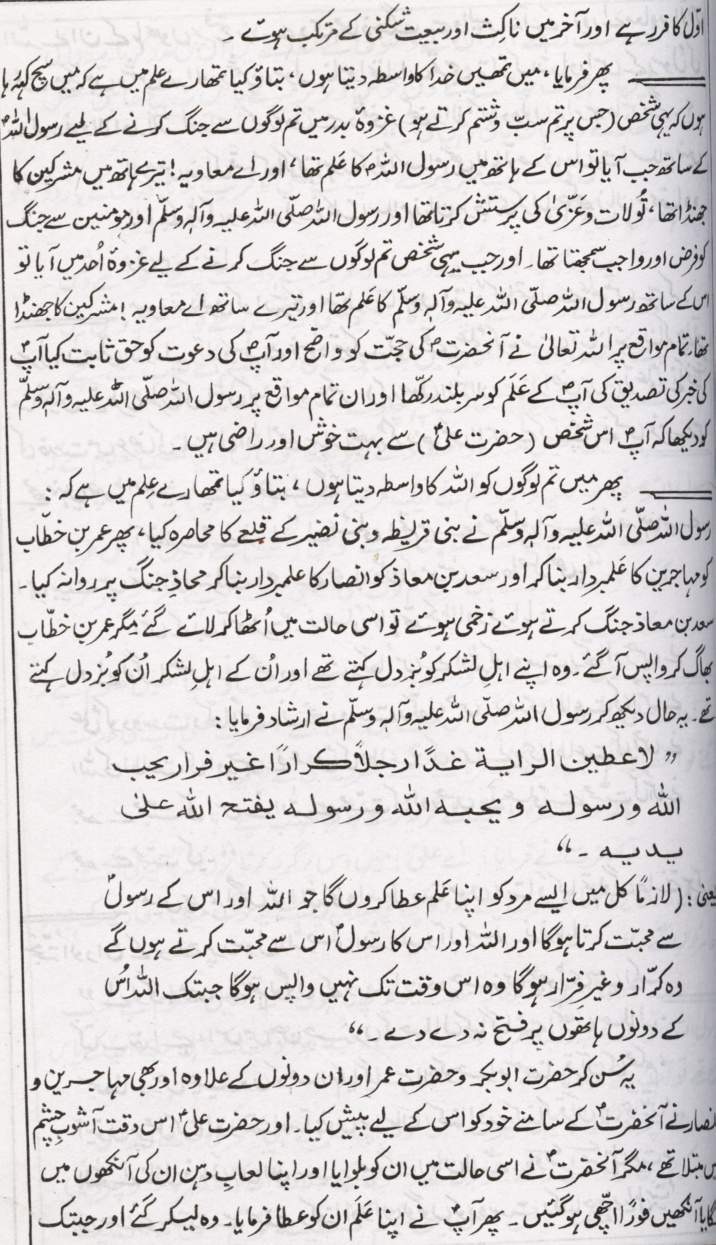 اوّل کافر رہے اور آخر میں ناکث اور بیعت شکنی کے مرتکب ہوئے ۔
پھر فرمایا، میں تمھیں خدا کا واسطہ دیتا ہوں، بتاؤ کیا تمھارے علم میں ہے کہ میں سچ کہہ رہا
ہوں کہ یہی شخص (جس پر تم سبّ و شتم کرتے ہو) غزوۂ بدر میں تم لوگوں سے جنگ کرنے کے لیے رسول اللہؐ
کے ساتھ جب آیا تو اس کے ہاتھ میں رسول اللہؐ کا عَلم تھا، اور اے معاویہ! تیرے ہاتھ میں مشرکین کا
جھنڈا تھا، تُو لات و عزّیٰ کی پرستش کرتا تھا اور رسول اللہ صلّی اللہ علیہ وآلہ وسلّم اور مومنین سے جنگ
کو فرض اور واجب سمجھتا تھا ۔ اور جب یہی شخص تم لوگوں سے جنگ کرنے کے لیے غزوۂ اُحد میں آیا تو
اس کے ساتھ رسول اللہ صلّی اللہ علیہ وآلہ وسلّم کا عَلم تھا اور تیرے ساتھ اے معاویہ! مشرکین کا جھنڈا
تھا، تمام مواقع پر اللہ تعالیٰ نے آنحضرتؐ کی حجّت کو واضح اور آپؐ کی دعوت کو حق ثابت کیا آپؐ
کی خبر کی تصدیق کی آپؐ کے عَلَم کو سربلند رکھا اور ان تمام مواقع پر رسول اللہ صلّی اللہ علیہ وآلہ وسلّم
کو دیکھا کہ آپؐ اس شخص (حضرت علیؑ) سے بہت خوش اور راضی ہیں ۔
پھر میں تم لوگوں کو اللہ کا واسطہ دیتا ہوں، بتاؤ کیا تمھارے علم میں ہے کہ :
رسول اللہ صلّی اللہ علیہ وآلہ وسلّم نے بنی قریظہ و بنی نضیر کے قلعے کا محاصرہ کیا، پھر عمر بن خطّاب
کو مہاجرین کا عَلمبردار بنا کر اور سعد بن معاذ کو انصار کا علمبردار بنا کر محاذِ جنگ پر روانہ کیا ۔
سعد بن معاذ جنگ کرتے ہوئے زخمی ہوئے تو اسی حالت میں اُٹھا کر لائے گئے مگر عمر بن خطّاب
بھاگ کر واپس آگئے ۔ وہ اپنے اہلِ لشکر کو بزدل کہتے تھے اور اُن کے اہلِ لشکر اُن کو بُزدل کہتے
تھے ۔ یہ حال دیکھ کر رسول اللہ صلّی اللہ علیہ وآلہ وسلّم نے ارشاد فرمایا :
” لاعطین الرایة غدًا رجلاً کرارًا غیر فرار یحب
الله و رسوله و یحبه الله و رسوله یفتح الله علیٰ
یدیه ۔ “
یعنی : ( لازماً کل میں ایسے مرد کو اپنا عَلم عطا کروں گا جو اللہ اور اس کے رسولؐ
سے محبّت کرتا ہوگا اور اللہ اور اس کا رسولؐ اس سے محبّت کرتے ہوں گے
وہ کرّار و غیر فرّار ہوگا وہ اس وقت تک نہیں واپس ہوگا جبتک اللہ اُس
کے دونوں ہاتھوں پر فتح نہ دے دے ۔ “
یہ سُن کر حضرت ابوبکر و حضرت عمر اور ان دونوں کے علاوہ اور بھی مہاجرین و
انصار نے آنحضرتؐ کے سامنے خود کو اس کے لیے پیش کیا ۔ اور حضرت علیؑ اس وقت آشوبِ چشم
میں مبتلا تھے، مگر آنحضرتؐ نے اسی حالت میں ان کو بلوایا اور اپنا لعابِ دہن ان کی آنکھوں میں
لگایا آنکھیں فوراً اچھی ہوگئیں ۔ پھر آپؐ نے اپنا عَلَم ان کو عطا فرمایا ۔ وہ لیکر گئے اور جبتک